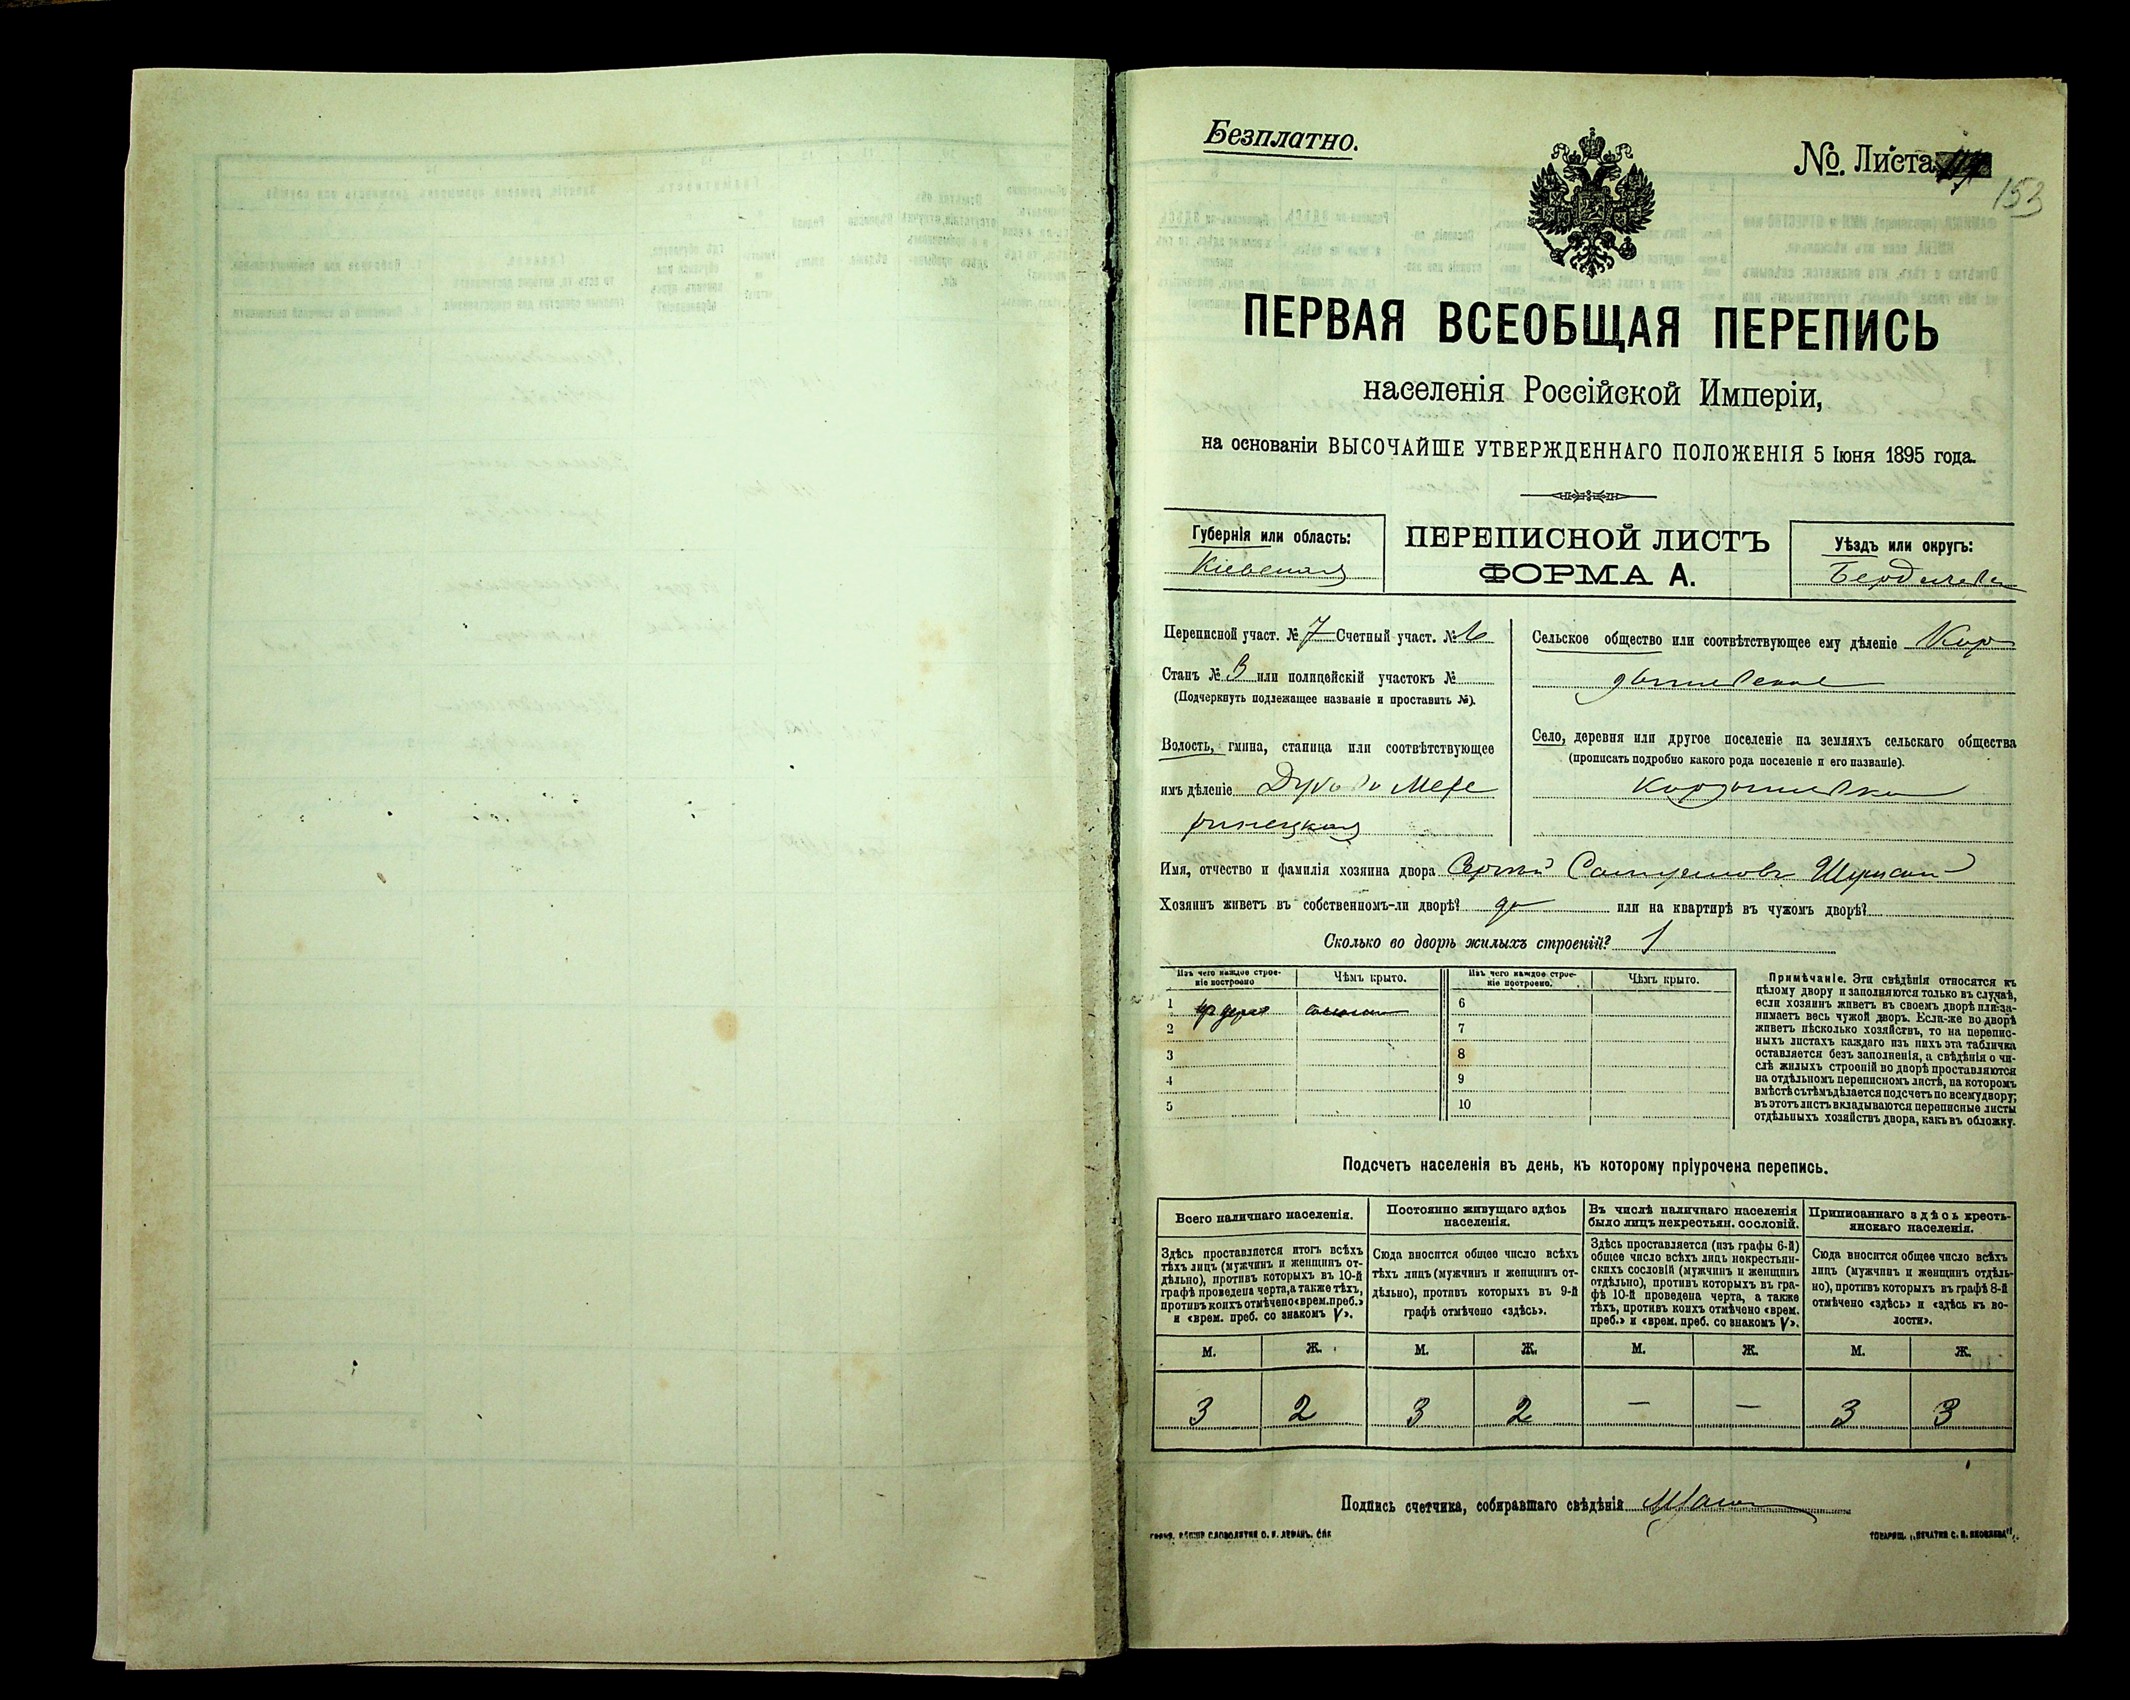 Безплатно.
№. Листа
153
ПЕРВАЯ ВСЕОБЩАЯ ПЕРЕПИСЬ
населенія Россійской Имперіи,
на основаніи ВЫСОЧАЙШЕ УТВЕРЖДЕННАГО ПОЛОЖЕНІЯ 5 Іюня 1895 года.
Губернія или область:
Кіевская
ПЕРЕПИСНОЙ ЛИСТЪ
ФОРМА А.
Уѣздъ или округъ:
Бердичевск
Переписной участ. № 7 Счетный участ. №
Станъ № 3 или полицейскій участокъ №
(Подчеркнуть подлежащее названіе и проставить №).
Волость, гмина, станица или соотвѣтствующее
имъ дѣленіе Дубово Меже
ринецкая
Сельское общество или соотвѣтствующее ему дѣленіе Кор
дышевское
Село, деревня или другое поселеніе на земляхъ сельскаго общества
(прописать подробно какого рода поселеніе и его названіе).
Кордышевка
Имя, отчество и фамилія хозяина двора Сергій
Хозяинъ живетъ въ собственномъ-ли дворѣ? да или на квартирѣ въ чужомъ дворѣ?
Сколько во дворѣ жилыхъ строеній? 1
Изъ чего каждое строеніе построено
Чѣмъ крыто.
Изъ чего каждое строеніе построено.
Чѣмъ крыто.
1 соломой
2
3
4
5
6
7
8
9
10
Примѣчаніе. Эти свѣдѣнія относятся къ
цѣлому двору и заполняются только въ случаѣ,
если хозяинъ живетъ въ своемъ дворѣ или за-
нимаетъ весь чужой дворъ. Если-же во дворѣ
живетъ нѣсколько хозяйствъ, то на перепис-
ныхъ листахъ каждаго изъ нихъ эта табличка
оставляется безъ заполненія, а свѣдѣнія о чи-
слѣ жилыхъ строеній во дворѣ проставляются
на отдѣльномъ переписномъ листѣ, на которомъ
вмѣстѣ съ тѣмъ дѣлается подсчетъ по всему двору;
въ этотъ листъ вкладываются переписные листы
отдѣльныхъ хозяйствъ двора, какъ въ обложку.
Подсчетъ населенія въ день, къ которому пріурочена перепись.
Всего наличнаго населенія.
Здѣсь проставляется итогъ всѣхъ
тѣхъ лицъ (мужчинъ и женщинъ от-
дѣльно), противъ которыхъ въ 10-й
графѣ проведена черта, а также тѣхъ,
противъ коихъ отмѣчено «врем. преб.»
и «врем. преб. со знакомъ V».
Постоянно живущаго здѣсь
населенія.
Сюда вносится общее число всѣхъ
тѣхъ лицъ (мужчинъ и женщинъ от-
дѣльно), противъ которыхъ въ 9-й
графѣ отмѣчено «здѣсь».
Въ числѣ наличнаго населенія
было лицъ некрестьян. сословій.
Здѣсь проставляется (изъ графы 6-й)
общее число всѣхъ лицъ некрестьян-
скихъ сословій (мужчинъ и женщинъ
отдѣльно), противъ которыхъ въ гра-
фѣ 10-й проведена черта, а также
тѣхъ, противъ коихъ отмѣчено «врем.
преб.» и «врем. преб. со знакомъ V».
Приписаннаго здѣсь кресть-
янскаго населенія.
Сюда вносится общее число всѣхъ
лицъ (мужчинъ и женщинъ отдѣль-
но), противъ которыхъ въ графѣ 8-й
отмѣчено «здѣсь» и «здѣсь къ во-
лости».
М. Ж. М. Ж. М. Ж. М. Ж.
3 2 3 2 — — 3 3
Подпись счетчика, собиравшаго свѣдѣнія
ТОВАРИЩ. „ПЕЧАТНЯ С. П. ЯКОВЛЕВА".